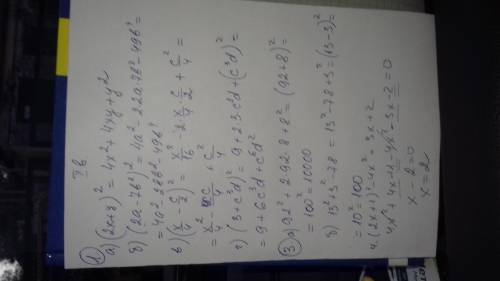 I в
① а) (2x+y)² = 4x² + 4xy + y²
б) (2a-7b²)² = 4a² - 2·2a·7b² - 49b⁴
= 4a² - 28b² - 49b⁴
в) (x/4 - c/2)² = x²/16 - 2·x/4·c/2 + c²/4 =
г) (3+c³d)² = 9 + 2·3·c³d + (c³d)²
= 9 + 6c³d + c⁶d²
③ а) 92² + 2·92·8 + 8² = (92+8)²
= 100² = 10000
б) 13² + 3² - 78 = 13² - 78 + 3² = (13-3)²
= 10² = 100
4. (2x+1)² - 4x² = 3x + 2
x - 2 = 0
x = 2